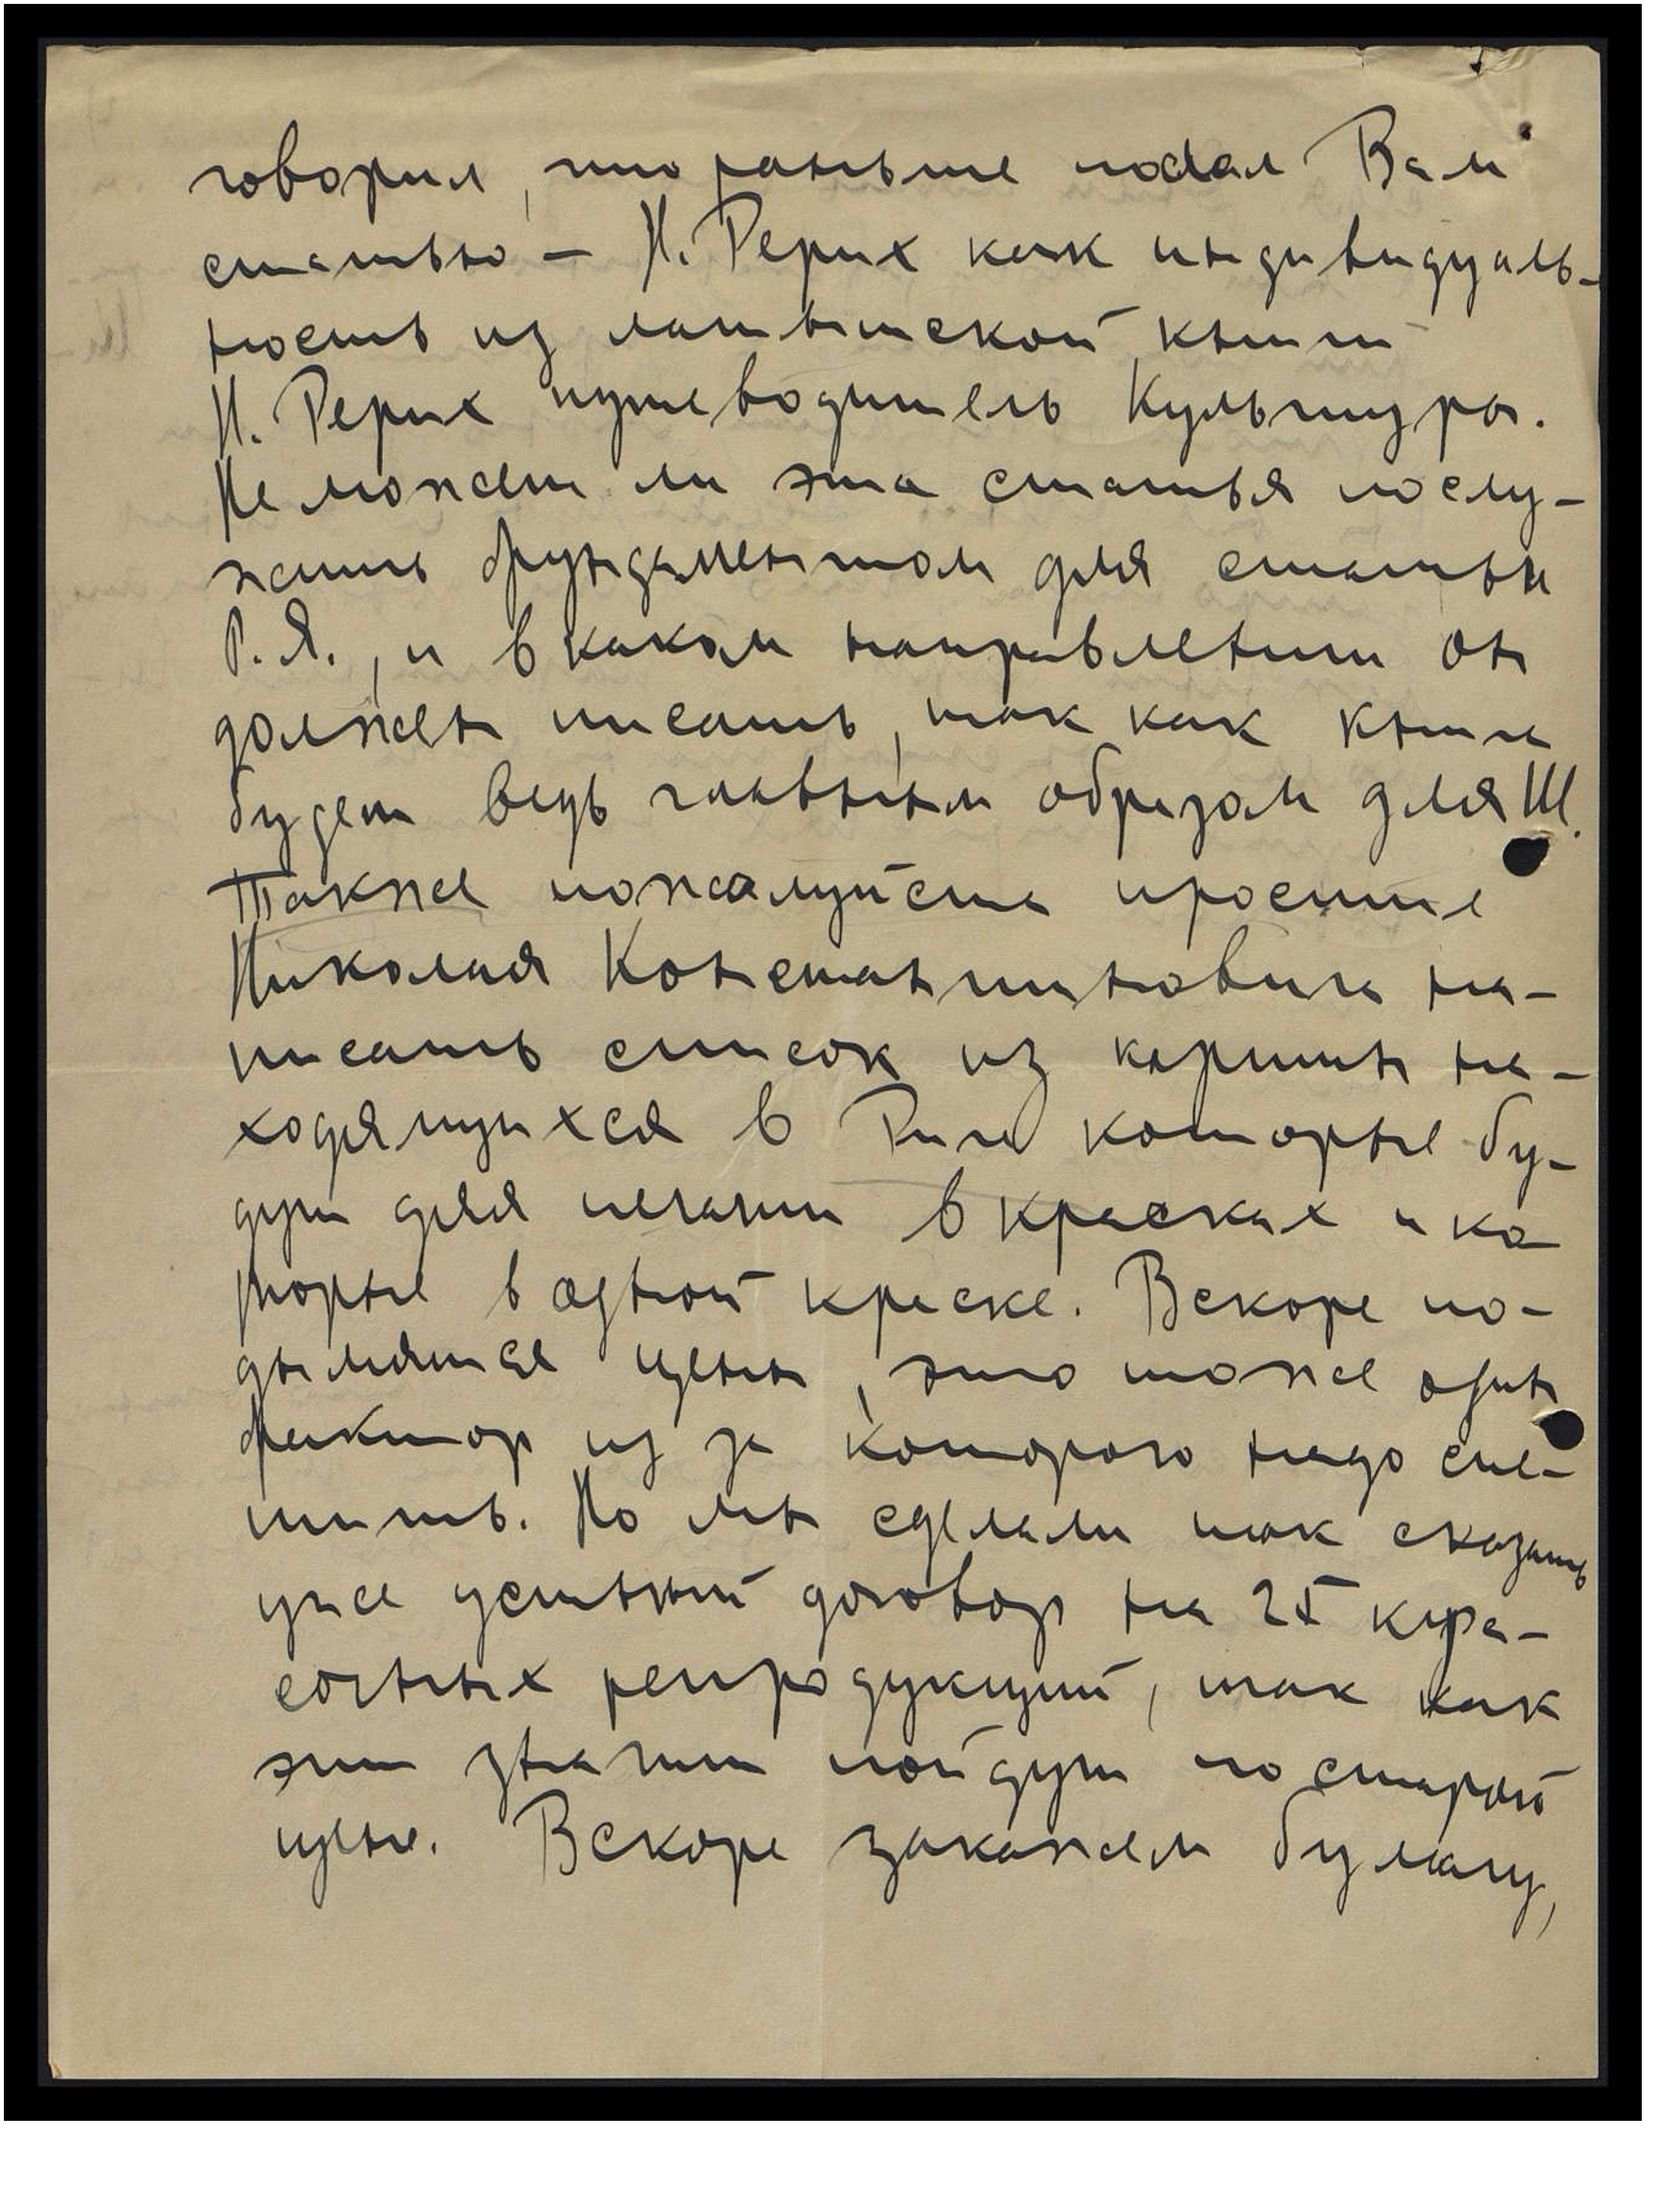 говорил, что раньше подал Вам
статью – Н. Рерих как индивидуаль-
ность из латышской книги
Н. Рерих путеводитель Культуры.
Не может ли эта статья послу-
жить фундаментом для статьи
Р.Я., и в каком направлении он
должен писать, так как книга
будет ведь главным образом для Ш.
Также пожалуйста просите
Николая Константиновича на-
писать список из картин на-
ходящихся в Риге которые бу-
дут для печати в красках и ко
торые в одной краске. Вскоре по-
дымятся цены, это тоже один
фактор из за которого надо спе-
шить. Но мы сделали так сказать
уже устный договор на 25 кра-
сочных репродукций, так как
эти значит пойдут по старой
цене. Вскоре закажем бумагу,